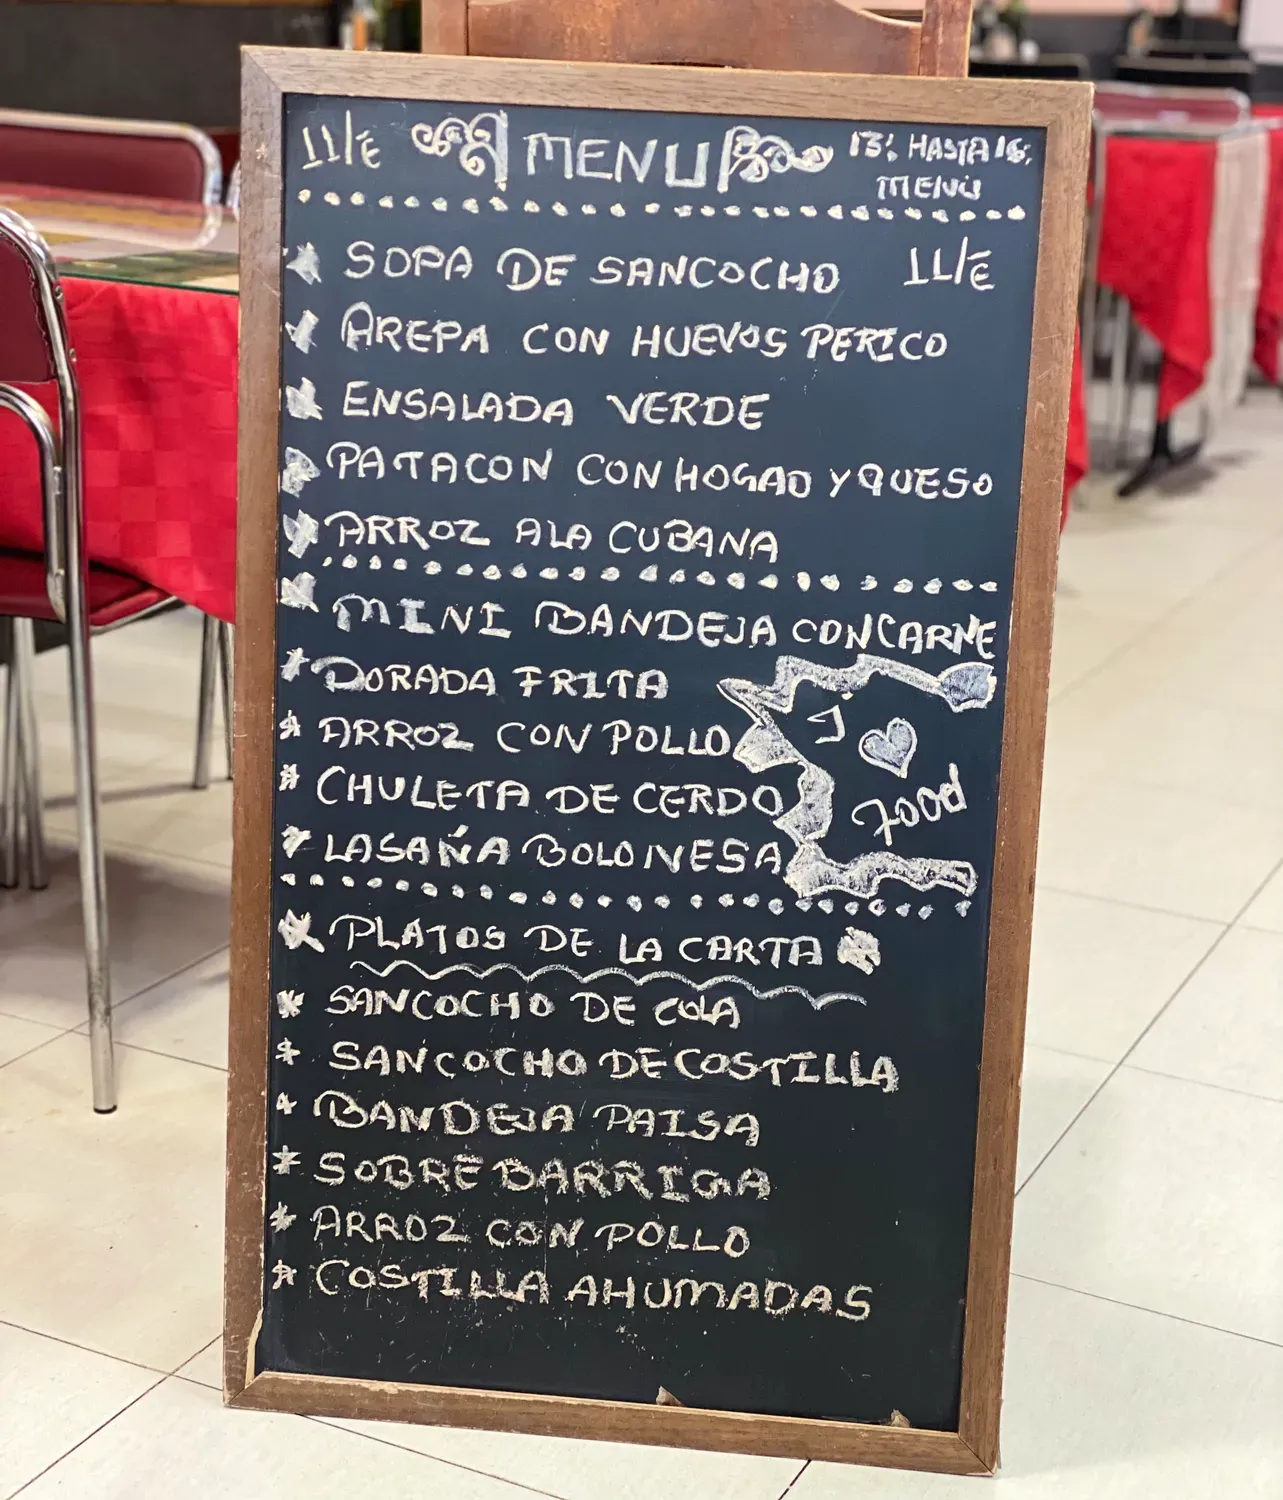 11/E MENU 13: HASTA 16:
MENÚ
SOPA DE SANCOCHO 11/E
AREPA CON HUEVOS PERICO
ENSALADA VERDE
PATACON CON HOGAO Y QUESO
ARROZ A LA CUBANA
MINI BANDEJA CON CARNE
DORADA FRITA
ARROZ CON POLLO
CHULETA DE CERDO
LASAÑA BOLONESA
I ♥
FOOD
PLATOS DE LA CARTA
SANCOCHO DE COLA
SANCOCHO DE COSTILLA
BANDEJA PAISA
SOBREBARRIGA
ARROZ CON POLLO
COSTILLA AHUMADAS